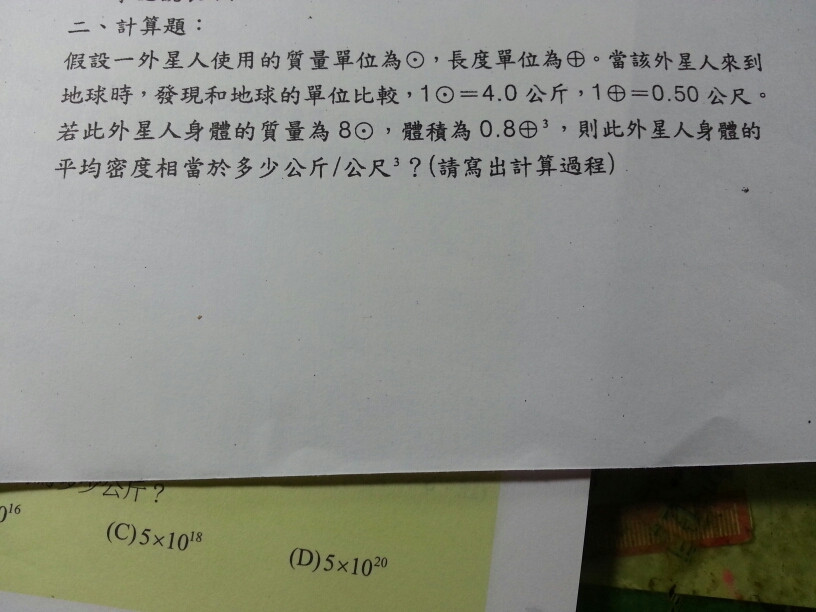 二、計算題：
假設一外星人使用的質量單位為⊙，長度單位為⊕。當該外星人來到
地球時，發現和地球的單位比較，1⊙＝4.0公斤，1⊕＝0.50公尺。
若此外星人身體的質量為8⊙，體積為0.8⊕³，則此外星人身體的
平均密度相當於多少公斤/公尺³？(請寫出計算過程)
多少公斤？
0¹⁶
(C)5×10¹⁸
(D)5×10²⁰